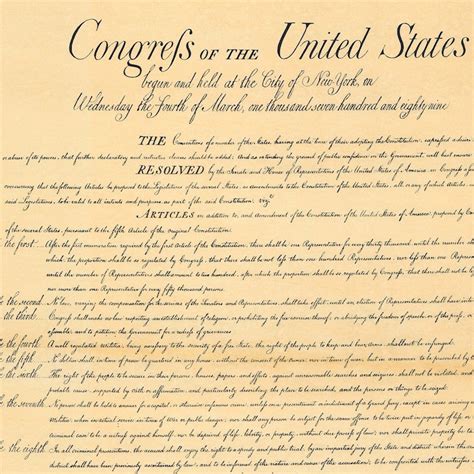 Congreſs OF THE United States
begun and held at the City of New-York, on
Wednesday the Fourth of March, one thousand seven hundred and eighty nine
THE Conventions of a number of the States, having at the time of their adopting the Constitution, expressed a desire
abuse of its powers, that further declaratory and restrictive clauses should be added: And as extending the ground of public confidence in the Government, will best ensure
RESOLVED by the Senate and House of Representatives of the United States of America, in Congress
concurring, that the following Articles be proposed to the Legislatures of the several States, as amendments to the Constitution of the United States, all, or any of which
said Legislatures, to be valid to all intents and purposes, as part of the said Constitution; viz.
ARTICLES in addition to, and amendment of the Constitution of the United States of America, proposed by
of the several States, pursuant to the fifth Article of the original Constitution.
the first After the first enumeration required by the first Article of the Constitution, there shall be one Representative for every thirty thousand, until the number
which, the proportion shall be so regulated by Congress, that there shall be not less than one hundred Representatives, nor less than one
until the number of Representatives shall amount to two hundred, after which, the proportion shall be so regulated by Congress, that there shall not be
for every fifty thousand persons.
the second No law, varying the compensation for the services of the Senators and Representatives, shall take effect, until an election of Representatives shall have
the third Congress shall make no law respecting an establishment of religion, or prohibiting the free exercise thereof; or abridging the freedom of speech, or of the
assemble, and to petition the Government for a redress of grievances
the fourth A well regulated militia, being necessary to the security of a free State, the right of the people to keep and bear arms, shall not be infringed.
the fifth No Soldier shall, in time of peace be quartered in any house, without the consent of the owner, nor in time of war, but in a manner to be prescribed by
the sixth The right of the people to be secure in their persons, houses, papers, and effects, against unreasonable searches and seizures, shall not be violated, and
probable cause, supported by oath or affirmation, and particularly describing the place to be searched, and the persons or things to be seized.
the seventh No person shall be held to answer for a capital, or otherwise infamous crime, unless on a presentment or indictment of a Grand Jury, except in cases arising
when in actual service in time of War or public danger; nor shall any person be subject for the same offence to be twice put in jeopardy of life or
criminal case to be a witness against himself, nor be deprived of life, liberty, or property, without due process of law; nor shall private property
the eighth In all criminal prosecutions, the accused shall enjoy the right to a speedy and public trial, by an impartial jury of the State and district wherein the
district shall have been previously ascertained by law, and to be informed of the nature and cause of the accusation; to be confronted with the